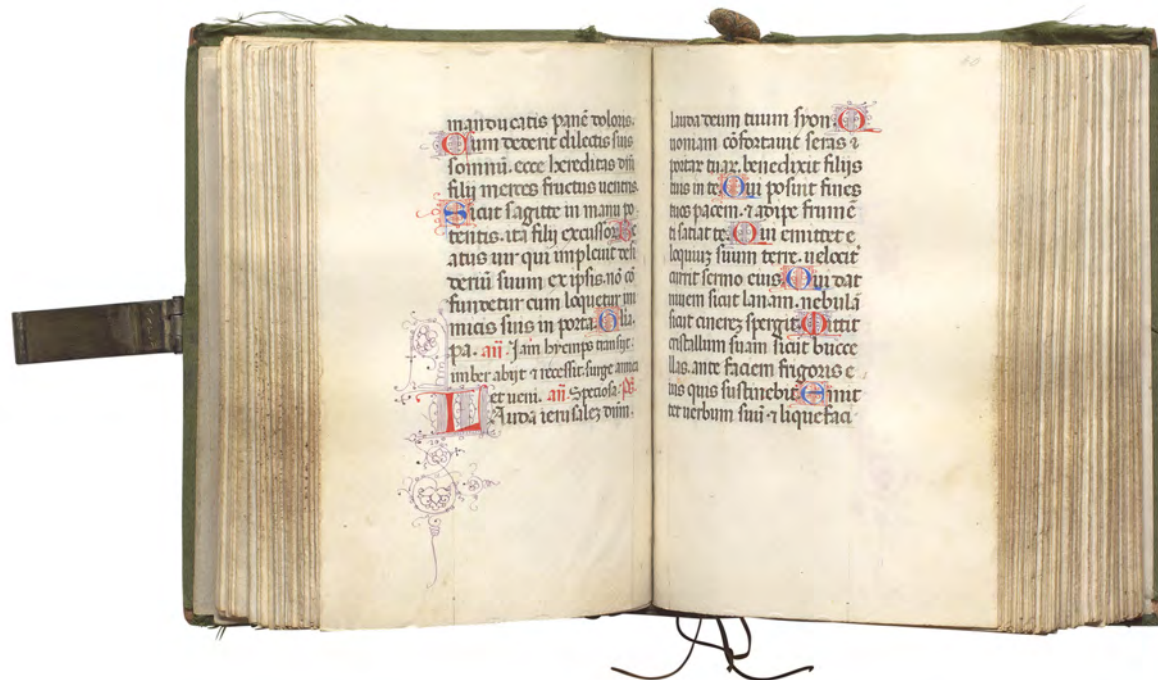 manducatis panē doloris.
Cum dederit dilectis suis
somnū. ecce hereditas dn̄i
filij merces fructus uentris.
Sicut sagitte in manu po
tentis. ita filij excussor Be
atus uir qui impleuit desi
deriū suum ex ipsis. nō cō
fundetur cum loquetur ini
micis suis in porta. Glia.
pa. an̄. Iam hyemps transijt.
imber abijt ⁊ recessit. surge amica
et ueni. an̄. Speciosa. ps̄.
LAuda ierusalez dn̄m.
lauda deum tuum syon. Q
uoniam cōfortauit seras ⁊
portar tuar. benedixit filijs
tuis in te. Qui posuit fines
tuos pacem. ⁊ adipe frumē
ti satiat te. Qui emittet e
loquiuz suum terre. uelocit̄
currit sermo eius. Qui dat
niuem sicut lanam. nebulā
sicut cinerez spergit. Mittit
cristallum suam sicut bucce
llas. ante faciem frigoris e
ius quis sustinebit. Emit
tet uerbum suū. ⁊ liquefaci